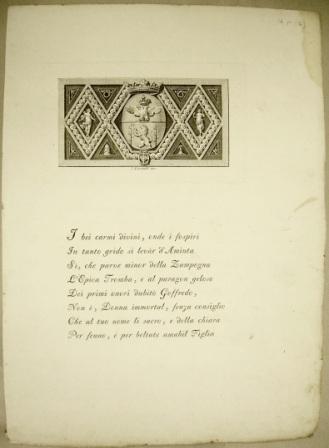 I bei carmi divini, onde i sospiri
In tanto grido si levar d'Aminta
Sì, che parve minor della Zampogna
L'Epica Tromba, e al paragon geloso
Dei primi onori dubitò Goffredo,
Non è, Donna immortal, senza consiglio
Che al tuo nome li sacro, e della chiara
Per senno, e per beltate amabil Figlia